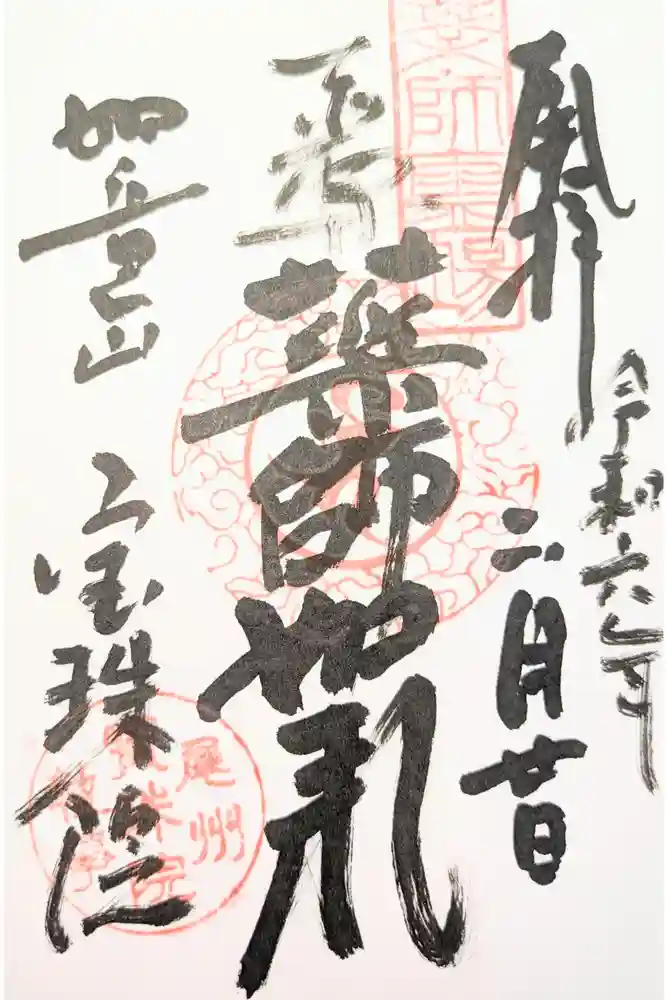 奉拝
令和六年
二月廿日
薬師霊場
藥師如来
如意山
宝珠院
尾州